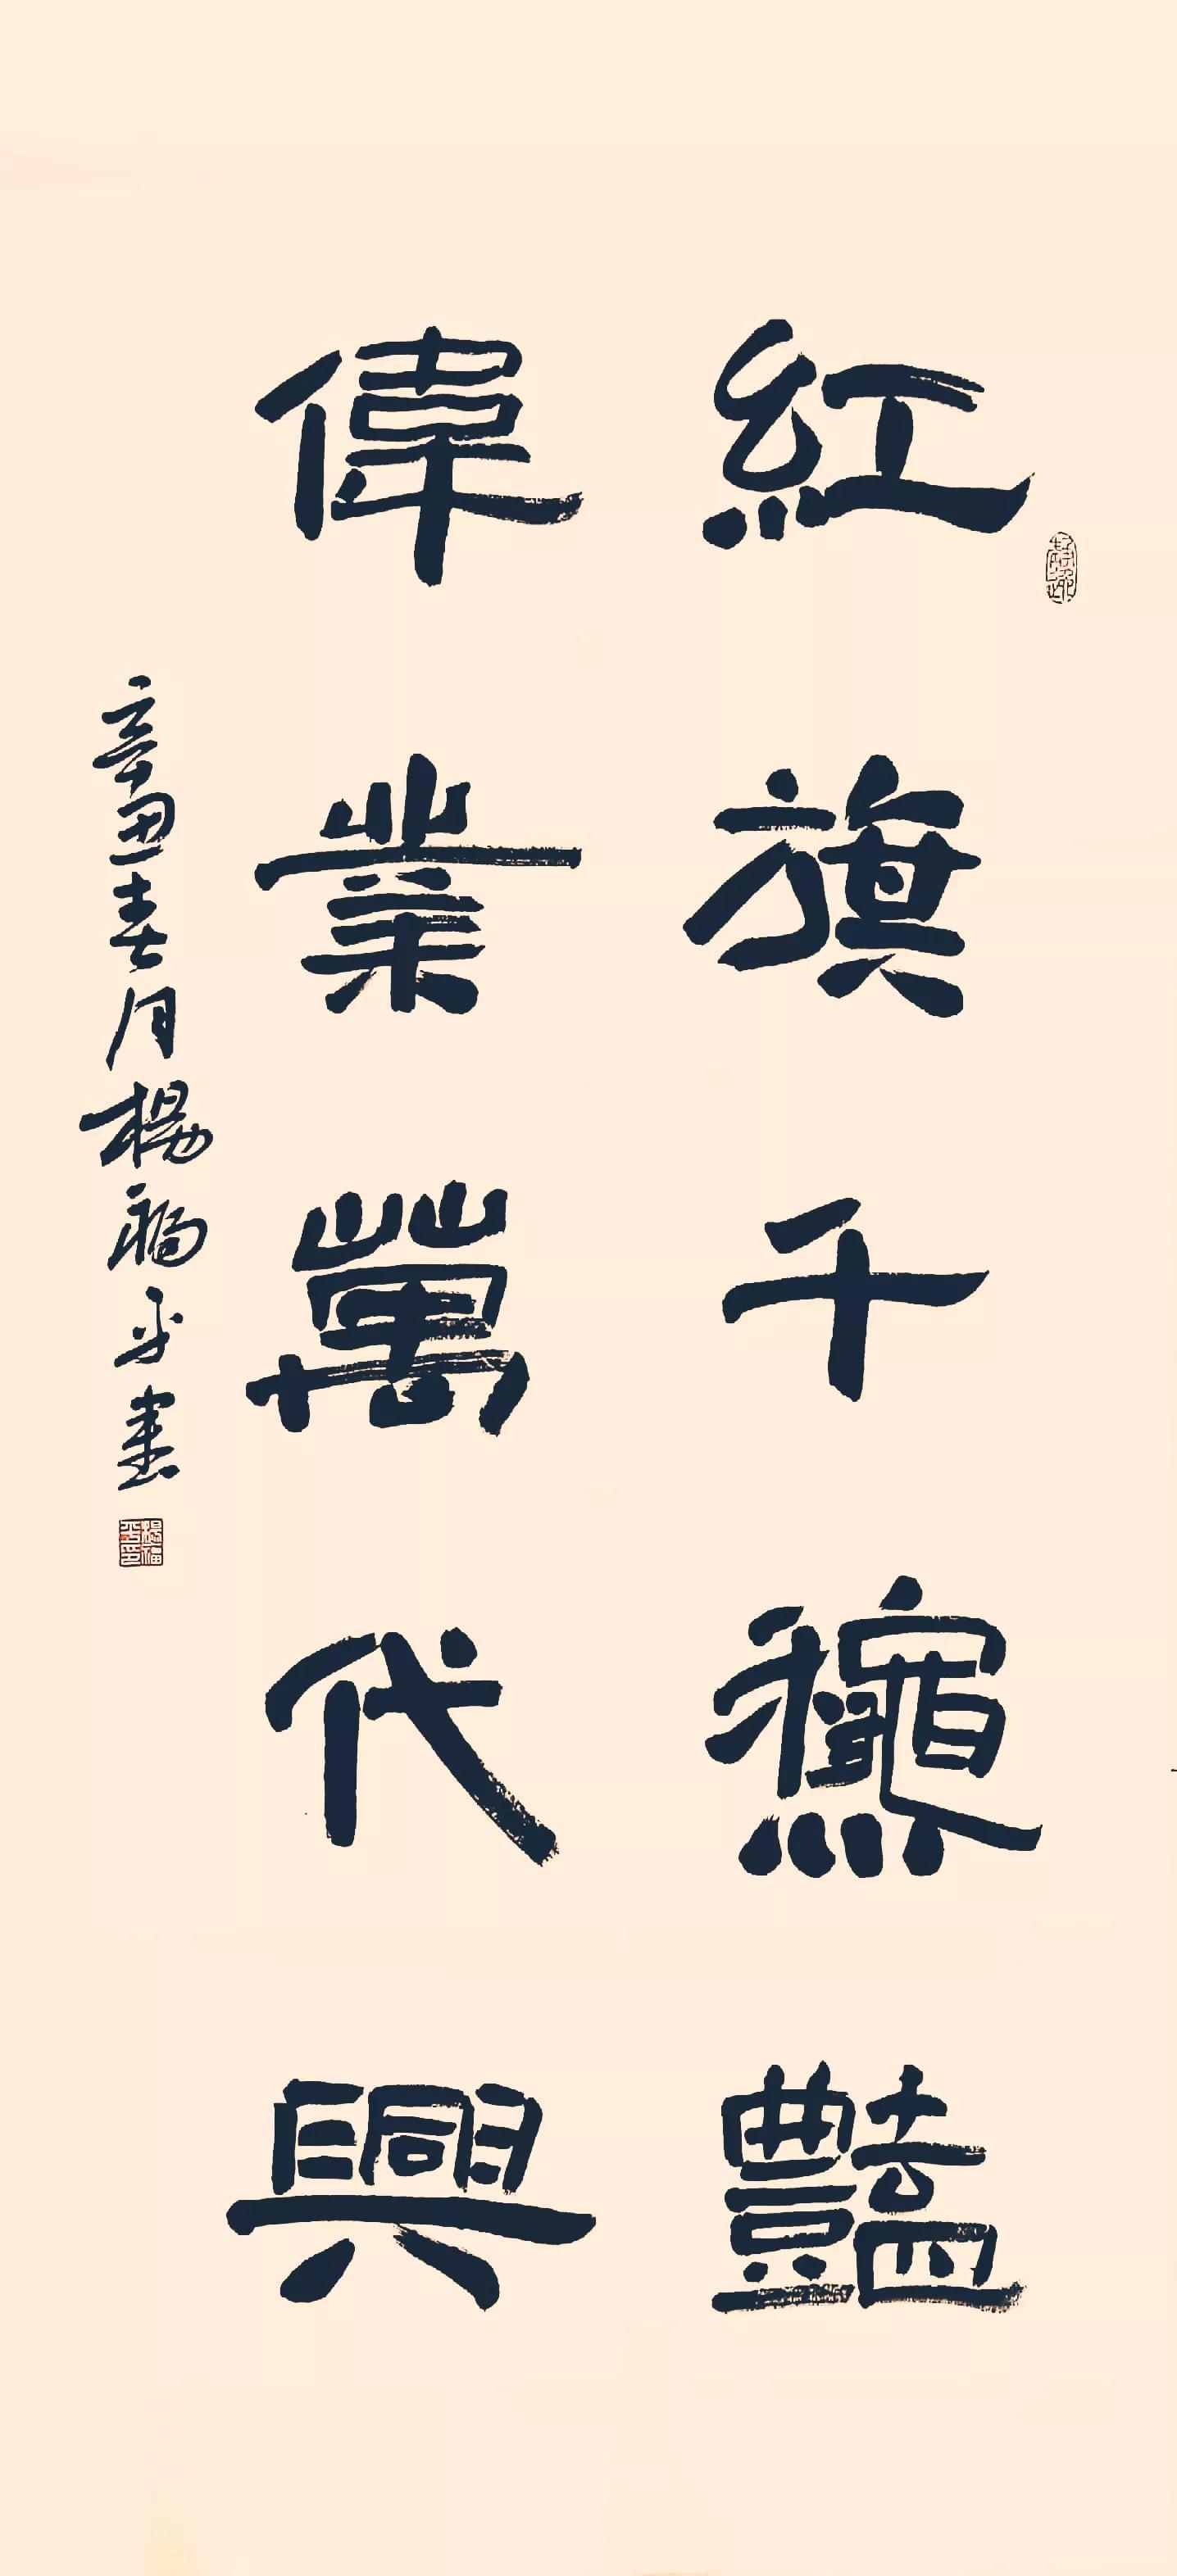 紅旗千龝豔
偉業萬代興
辛丑春月楊福平書
楊福平印